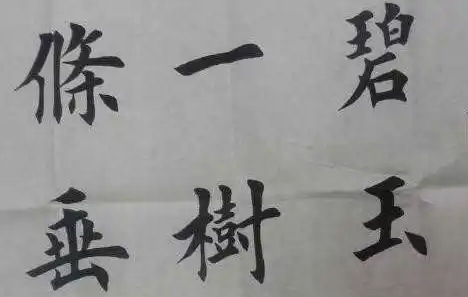 碧玉
一樹
條垂